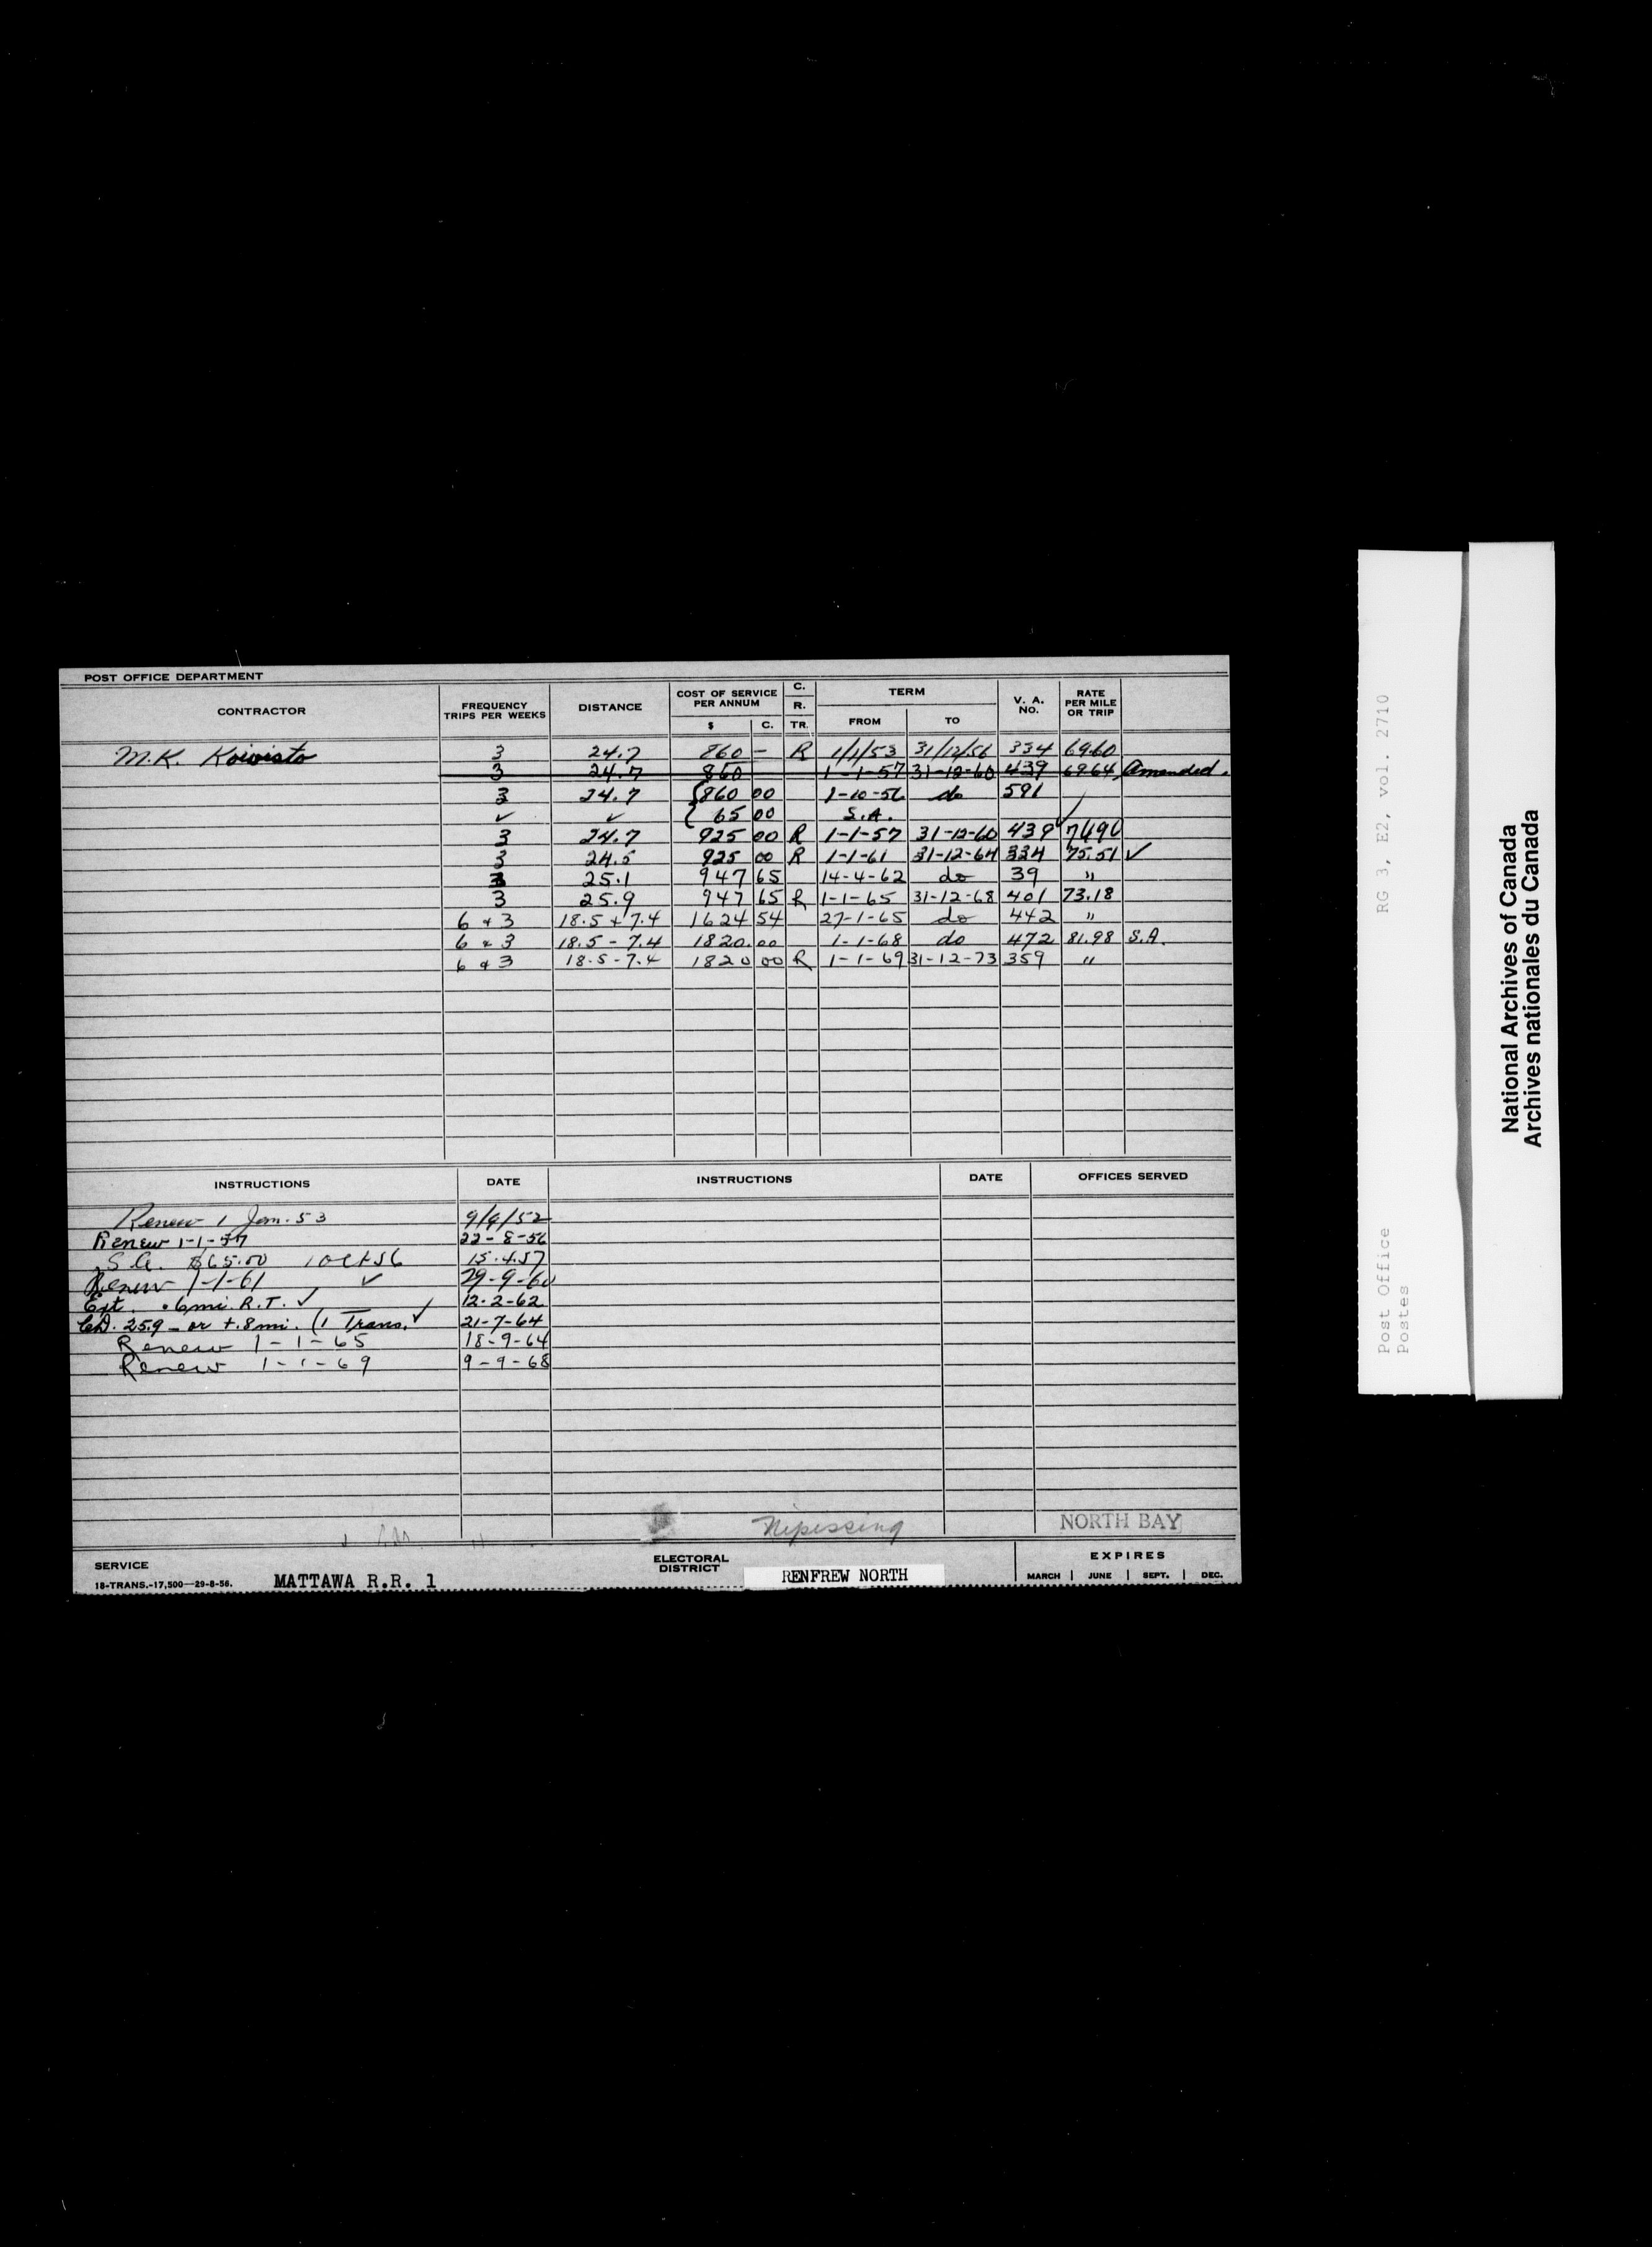 POST OFFICE DEPARTMENT
CONTRACTOR FREQUENCY TRIPS PER WEEKS DISTANCE COST OF SERVICE PER ANNUM $ C. C. R. TR. TERM FROM TO V. A. NO. RATE PER MILE OR TRIP
M.K. Koivisto 3 24.7 860 — R 1/1/53 31/12/56 334 69.60
3 24.7 860 1-1-57 31-12-60 439 69.64 Amended.
3 24.7 {860 00 1-10-56 do 591
✓ ✓ { 65 00 S.A. ✓
3 24.7 925 00 R 1-1-57 31-12-60 439
3 24.5 925 00 R 1-1-61 31-12-64 334 75.51 ✓
3 25.1 947 65 14-4-62 do 39 "
3 25.9 947 65 R 1-1-65 31-12-68 401 73.18
6 & 3 18.5 + 7.4 1624 54 27-1-65 do 442 "
6 & 3 18.5 - 7.4 1820.00 1-1-68 do 472 81.98 S.A.
6 & 3 18.5 - 7.4 1820 00 R 1-1-69 31-12-73 359 "
INSTRUCTIONS DATE INSTRUCTIONS DATE OFFICES SERVED
Renew 1 Jan. 53 9/9/52
Renew 1-1-57 22-8-56
S.A. $65.00 1 Oct 56 15.4.57
Renew 1-1-61 ✓ 29-9-60
Ext. .6 mi. R.T. ✓ 12-2-62
25.9 - or +.8 mi. (1 Trans. ✓ 21-7-64
Renew 1-1-65 18-9-64
Renew 1-1-69 9-9-68
Nipissing NORTH BAY
SERVICE ELECTORAL DISTRICT EXPIRES
18-TRANS.-17,500—29-8-56. MATTAWA R.R. 1 RENFREW NORTH MARCH | JUNE | SEPT. | DEC.
Post Office RG 3, E2, vol. 2710
Postes
National Archives of Canada
Archives nationales du Canada